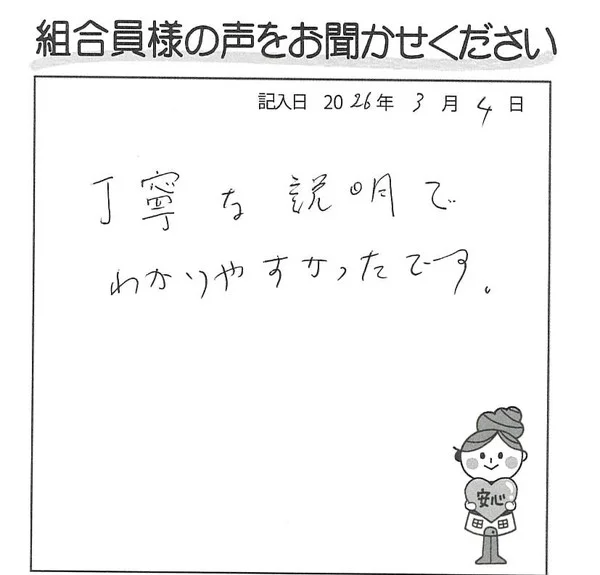 組合員様の声をお聞かせください
記入日 2026年 3月 4日
丁寧な説明で
わかりやすかったです。
安心